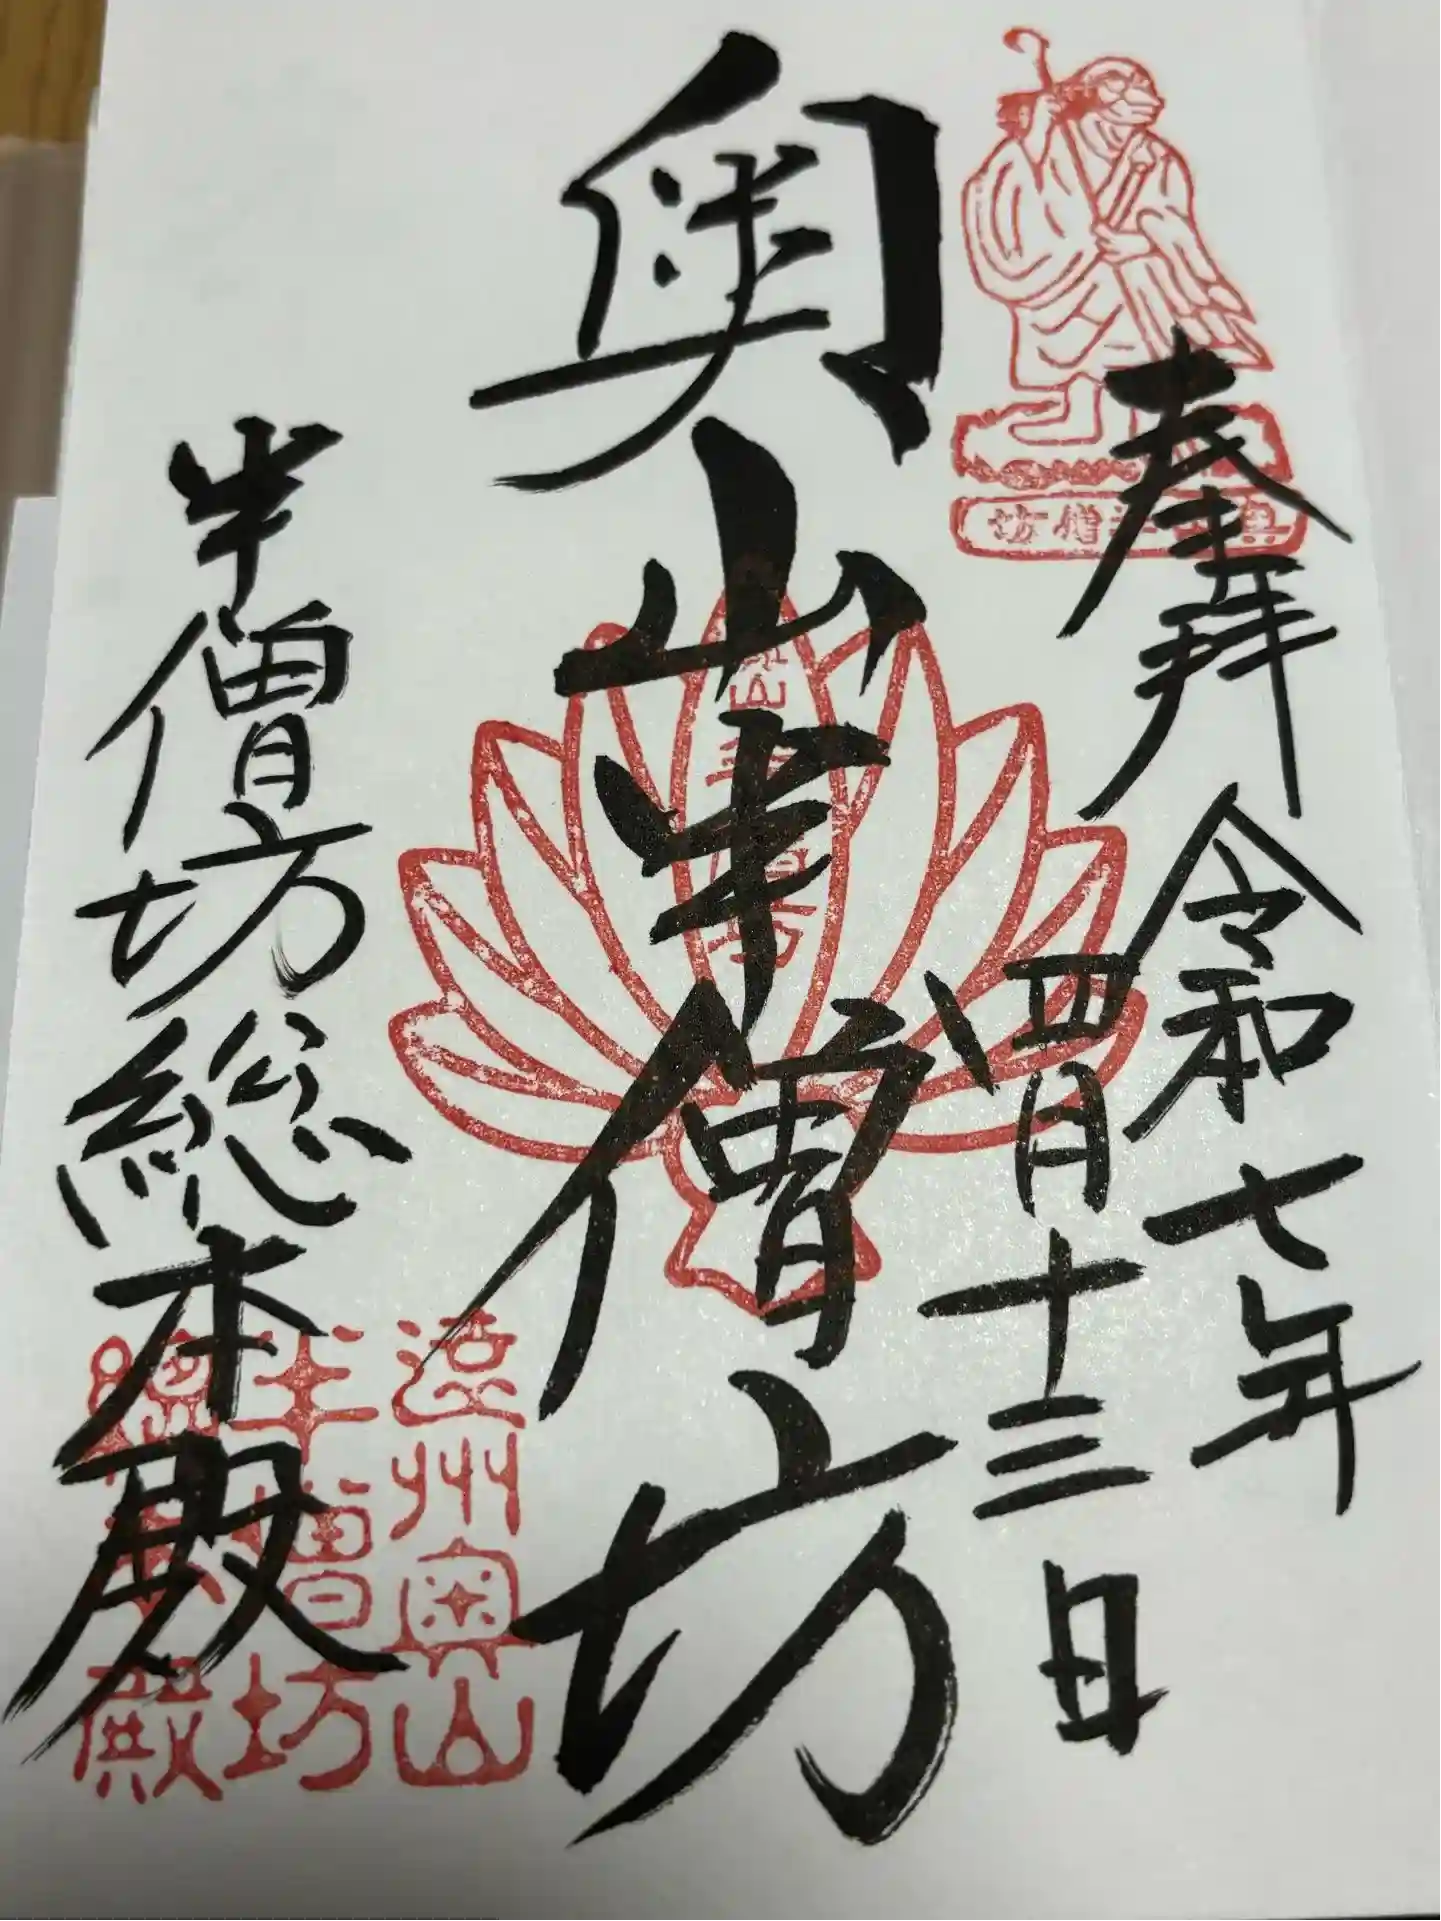 奉拝
令和七年
四月十三日
奥山半僧坊
半僧坊総本殿
奥山半僧坊
遠州奥山
半僧坊
總本殿